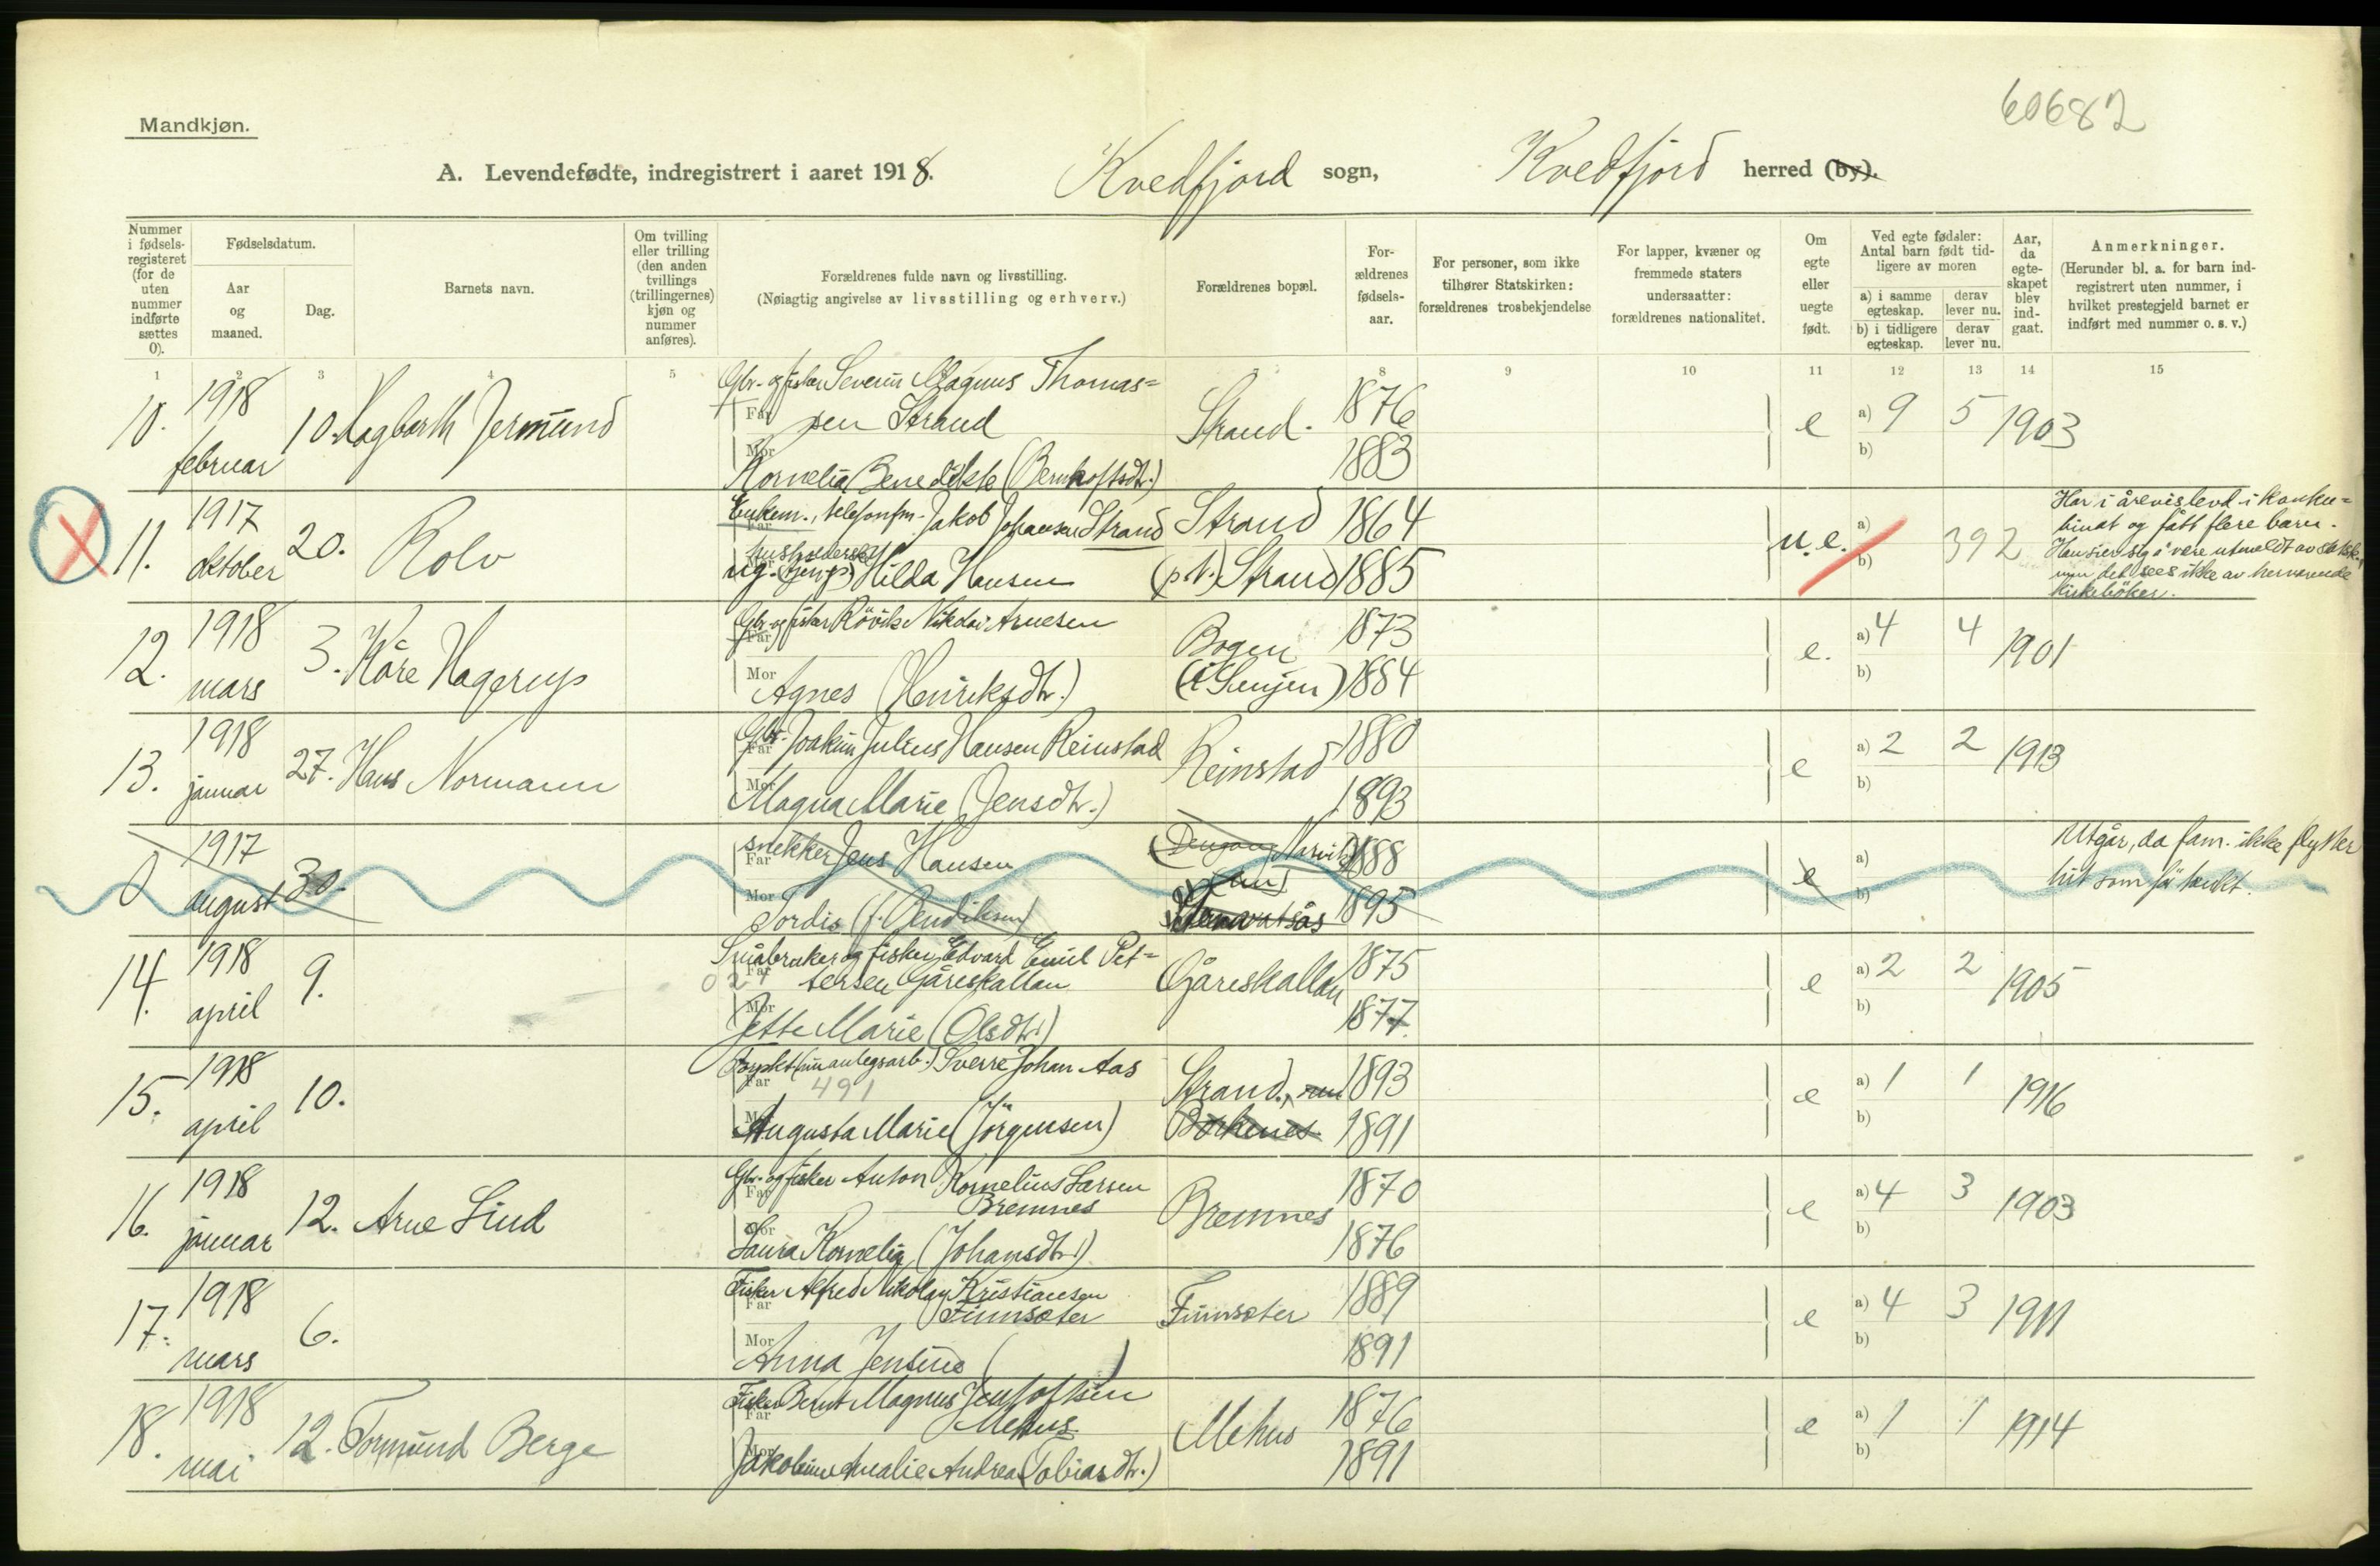 60682
Mandkjøn.
A. Levendefødte, indregistrert i aaret 1918. Kvedfjord sogn, Kvedfjord herred (by).
Nummer i fødsels-registeret (for de uten nummer indførte sættes 0).
Fødselsdatum.
Aar og maaned.
Dag.
Barnets navn.
Om tvilling eller trilling (den anden tvillings (trillingernes) kjøn og nummer anføres).
Forældrenes fulde navn og livsstilling.
(Nøiagtig angivelse av livsstilling og erhverv.)
Forældrenes bopæl.
For-ældrenes fødsels-aar.
For personer, som ikke tilhører Statskirken: forældrenes trosbekjendelse
For lapper, kvæner og fremmede staters undersaatter: forældrenes nationalitet.
Om egte eller uegte født.
Ved egte fødsler: Antal barn født tid-ligere av moren
a) i samme egteskap.
derav lever nu.
b) i tidligere egteskap.
derav lever nu.
Aar, da egte-skapet blev ind-gaat.
Anmerkninger.
(Herunder bl. a. for barn ind-registrert uten nummer, i hvilket prestegjeld barnet er indført med nummer o. s. v.)
1 2 3 4 5 8 9 10 11 12 13 14 15
10. 1918 februar 10. Hagbarth Jermund
Gbr. og fisker Severin Magnus Thomas=
Far sen Strand
Mor Kornelia Benedikte (Bernhoftsdtr.)
Strand. 1876 1883 e a) 9 5 1903
b)
11. 1917 oktober 20. Rolv
Enkem., telefonfm. Jakob Johansen Strand
Far
Mor husholderske ug. Hilda Hansen
Strand 1864
(p.t.) Strand 1885
u.e. a) b) 392
Har i årevis levd i konku=
binat og fått flere barn.
Han sier sig å være utmeldt av statsk.,
men det sees ikke av herværende
kirkebøker.
12. 1918 mars 3. Kåre Hagerup
Gbr. og fisker Rövik Nikolai Arnesen
Far
Mor Agnes (Henriksdtr.)
Bogen (i Senjen) 1873 1884 e. a) 4 4 1901
b)
13. 1918 januar 27. Hans Normann
Gbr. Joakim Julius Hansen Reinstad
Far
Mor Magna Marie (Jensdtr.)
Reinstad 1880 1893 e a) 2 2 1913
b)
0 1917 august 30.
snekker Jens Hansen
Far
Mor Tordis (f. Bendiksen)
Narvik 1888
1895
e a) b)
Utgår, da fam. ikke flytter
hit som før tænkt.
14. 1918 april 9.
Småbruker og fisker Edvard Emil Pet=
Far tersen Gåreskallan
Mor Jette Marie (Olsdtr.)
Gåreskallan 1875 1877. e a) 2 2 1905
b)
15. 1918 april 10.
Sverre Johan Aas
Far 491
Mor Augusta Marie (Jörgensen)
Strand, 1893
Borkenes. 1891
e a) 1 1 1916
b)
16. 1918 januar 12. Arne Lind
Gbr. og fisker Anton Kornelius Larsen
Far Bremnes
Mor Laura Kornelia (Johansdtr.)
Bremnes 1870 1876 e a) 4 3 1903
b)
17. 1918 mars 6.
Fisker Alfred Nikolay Kristiansen
Far Finnsæter
Mor Anna Jensine ( )
Finnsæter 1889 1891 e a) 4 3 1911
b)
18. 1918 mai 12. Tormund Berge
Fisker Bernt Magnus Jentoftsen
Far Mehus
Mor Jakobine Amalie Andrea (Tobiasdtr.)
Mehus 1876 1891 e a) 1 1 1914
b)